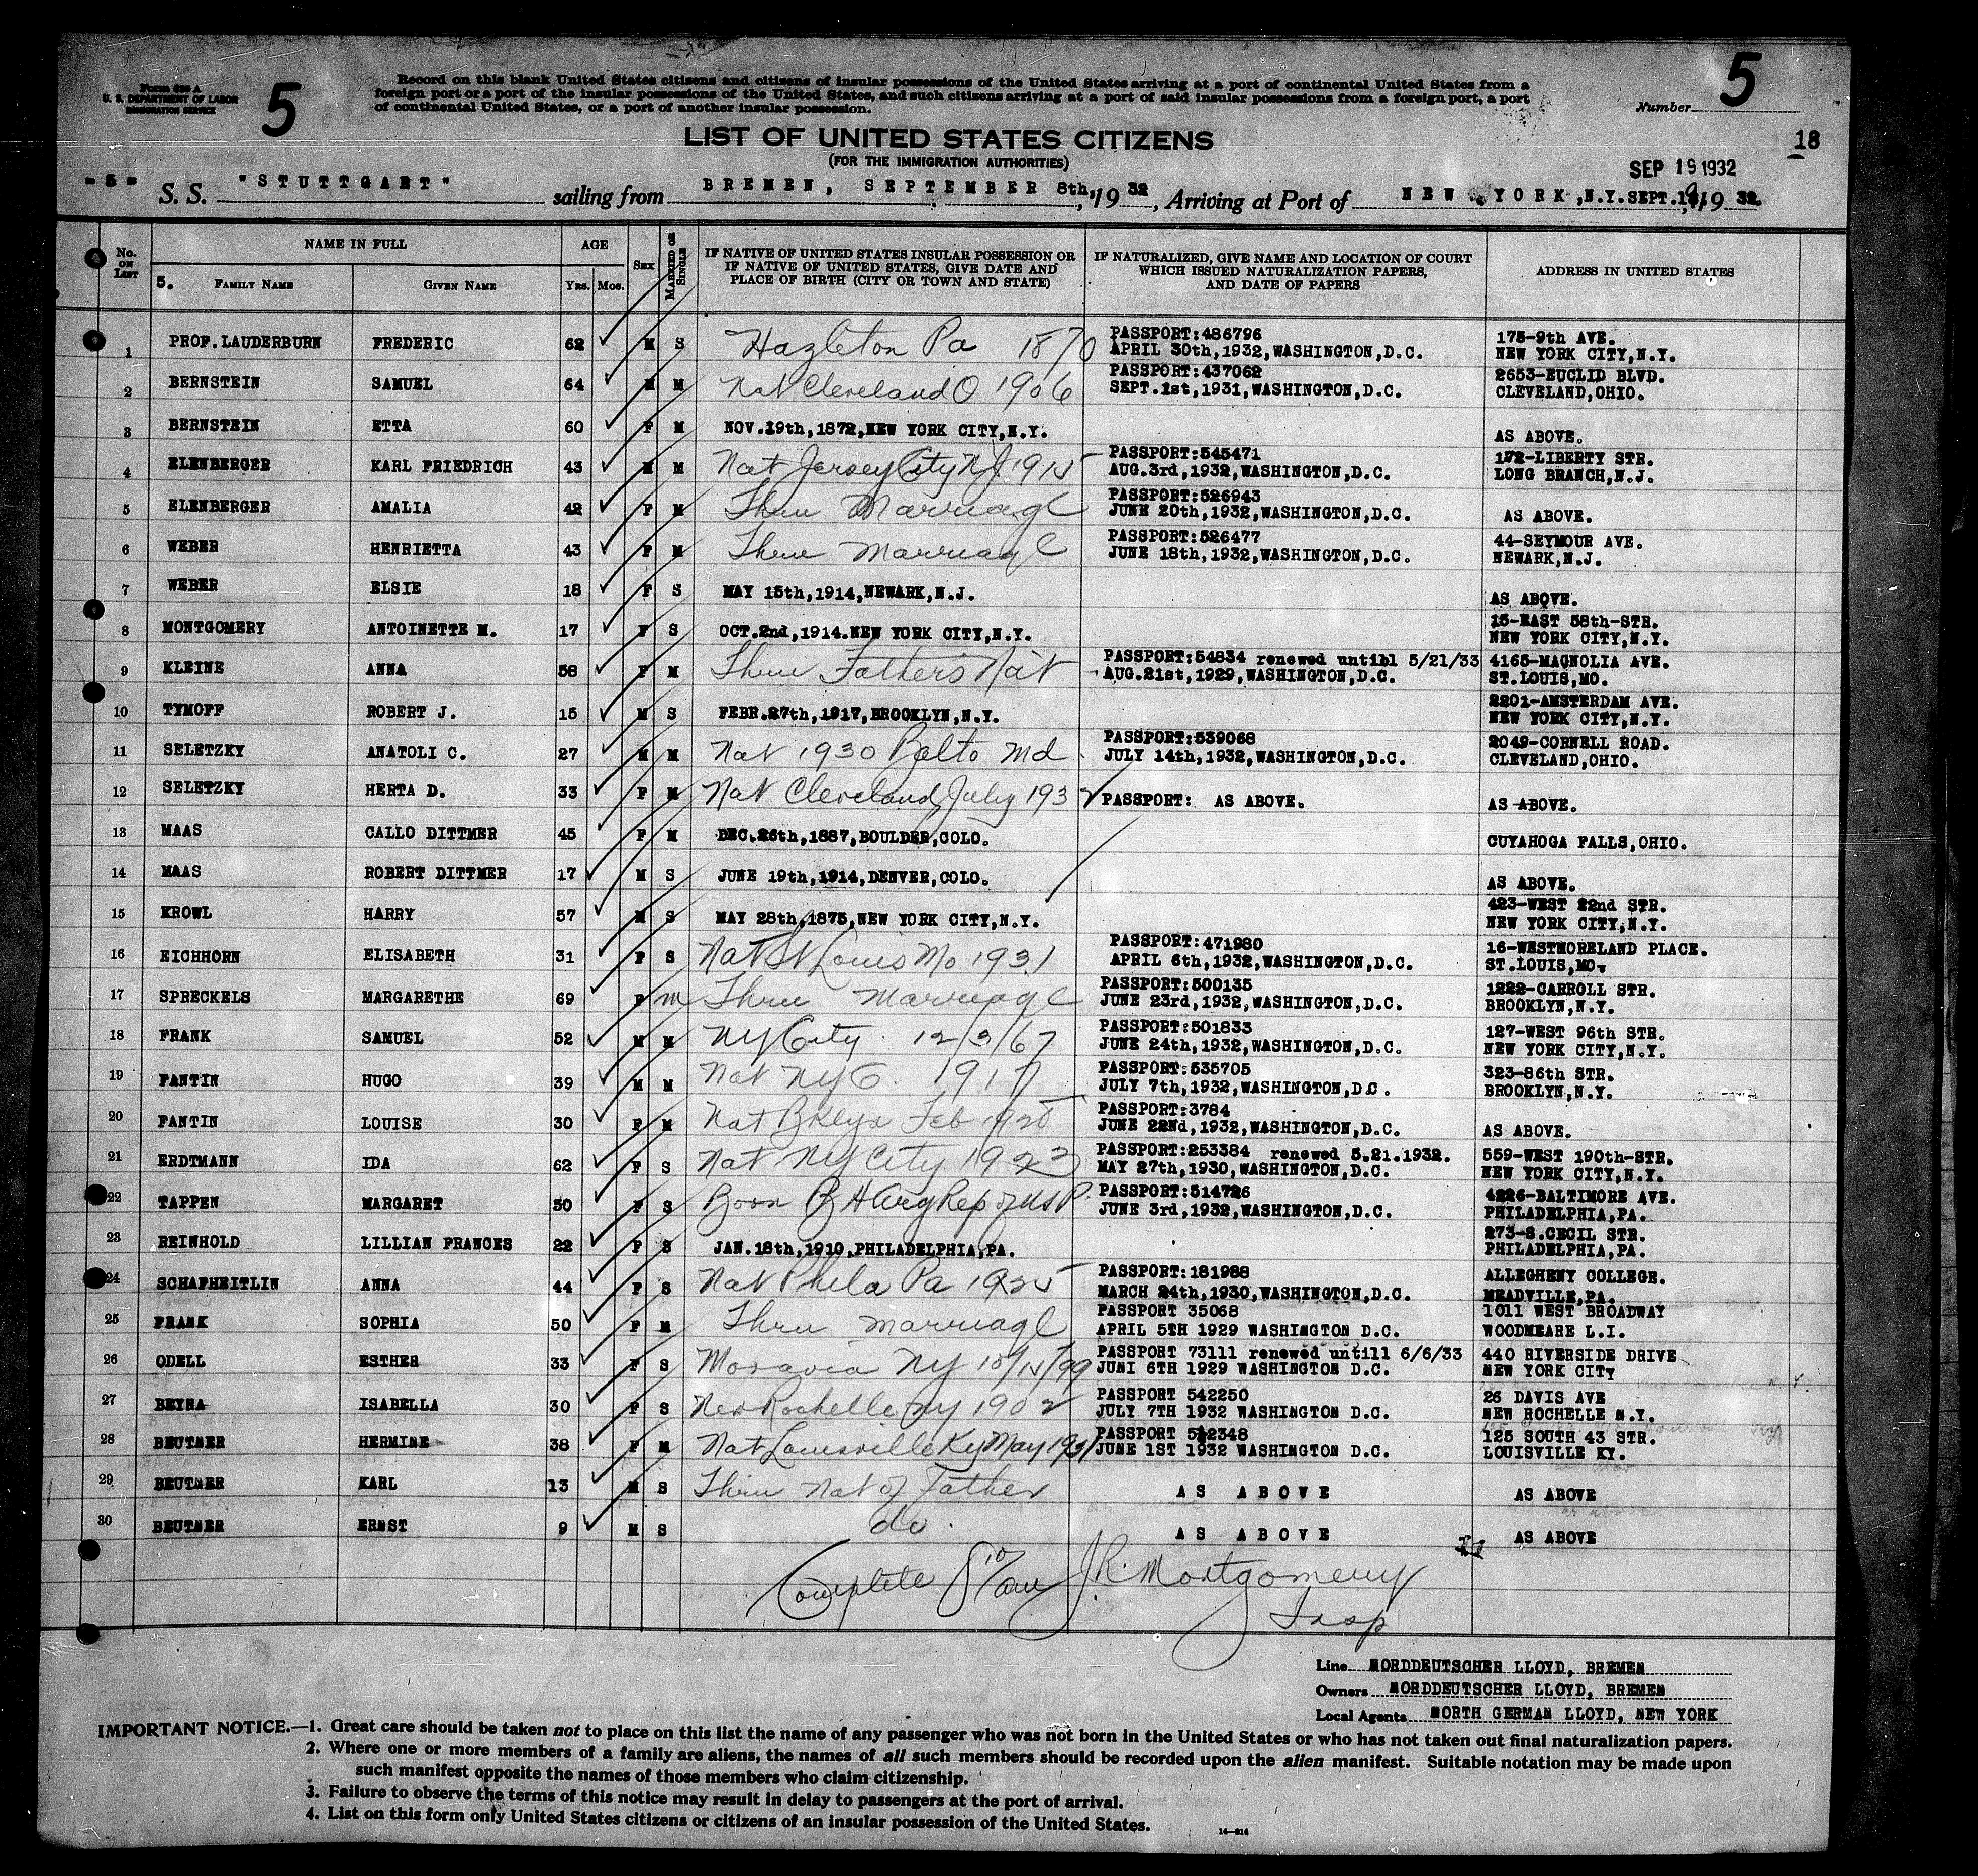 Form 630 A
U. S. DEPARTMENT OF LABOR
IMMIGRATION SERVICE
5
Record on this blank United States citizens and citizens of insular possessions of the United States arriving at a port of continental United States from a
foreign port or a port of the insular possessions of the United States, and such citizens arriving at a port of said insular possessions from a foreign port, a port
of continental United States, or a port of another insular possession.
Number 5
LIST OF UNITED STATES CITIZENS
(FOR THE IMMIGRATION AUTHORITIES)
18
SEP 19 1932
- 5 - S. S. "STUTTGART" sailing from BREMEN, SEPTEMBER 8th, 1932, Arriving at Port of NEW YORK, N.Y. SEPT. 19, 1932.
No. ON LIST NAME IN FULL AGE SEX MARRIED OR SINGLE IF NATIVE OF UNITED STATES INSULAR POSSESSION OR IF NATIVE OF UNITED STATES, GIVE DATE AND PLACE OF BIRTH (CITY OR TOWN AND STATE) IF NATURALIZED, GIVE NAME AND LOCATION OF COURT WHICH ISSUED NATURALIZATION PAPERS, AND DATE OF PAPERS ADDRESS IN UNITED STATES
5. FAMILY NAME GIVEN NAME YRS. MOS.
1 PROF. LAUDERBURN FREDERIC 62 M S Hazleton Pa 1870 PASSPORT:486796 APRIL 30th,1932,WASHINGTON,D.C. 175-9th AVE. NEW YORK CITY,N.Y.
2 BERNSTEIN SAMUEL 64 M M Nat Cleveland O 1906 PASSPORT:437062 SEPT.1st,1931,WASHINGTON,D.C. 2653-EUCLID BLVD. CLEVELAND,OHIO.
3 BERNSTEIN ETTA 60 F M NOV.19th,1872,NEW YORK CITY,N.Y. AS ABOVE.
4 ELENBERGER KARL FRIEDRICH 43 M M Nat Jersey City NJ 1915 PASSPORT:545471 AUG.3rd,1932,WASHINGTON,D.C. 172-LIBERTY STR. LONG BRANCH,N.J.
5 ELENBERGER AMALIA 42 F M Thru Marriage PASSPORT:526943 JUNE 20th,1932,WASHINGTON,D.C. AS ABOVE.
6 WEBER HENRIETTA 43 F M Thru Marriage PASSPORT:526477 JUNE 18th,1932,WASHINGTON,D.C. 44-SEYMOUR AVE. NEWARK,N.J.
7 WEBER ELSIE 18 F S MAY 15th,1914,NEWARK,N.J. AS ABOVE.
8 MONTGOMERY ANTOINETTE M. 17 F S OCT.2nd,1914.NEW YORK CITY,N.Y. 15-EAST 58th-STR. NEW YORK CITY,N.Y.
9 KLEINE ANNA 58 F M Thru Father's Nat PASSPORT:54834 renewed untibl 5/21/33 AUG.21st,1929,WASHINGTON,D.C. 4165-MAGNOLIA AVE. ST.LOUIS,MO.
10 TYMOFF ROBERT J. 15 M S FEBR.27th,1917,BROOKLYN,N.Y. 2201-AMSTERDAM AVE. NEW YORK CITY,N.Y.
11 SELETZKY ANATOLI C. 27 M M Nat 1930 Balto Md. PASSPORT:539068 JULY 14th,1932,WASHINGTON,D.C. 2049-CORNELL ROAD. CLEVELAND,OHIO.
12 SELETZKY HERTA D. 33 F M Nat Cleveland, July 1932 PASSPORT: AS ABOVE. AS ABOVE.
13 MAAS CALLO DITTMER 45 F M DEC.26th,1887,BOULDER,COLO. CUYAHOGA FALLS,OHIO.
14 MAAS ROBERT DITTMER 17 M S JUNE 19th,1914,DENVER,COLO. AS ABOVE.
15 KROWL HARRY 57 M S MAY 28th,1875,NEW YORK CITY,N.Y. 423-WEST 22nd STR. NEW YORK CITY,N.Y.
16 EICHHORN ELISABETH 31 F S Nat St Louis Mo 1931 PASSPORT:471980 APRIL 6th,1932,WASHINGTON,D.C. 16-WESTMORELAND PLACE. ST.LOUIS,MO.
17 SPRECKELS MARGARETHE 69 F M Thru Marriage PASSPORT:500135 JUNE 23rd,1932,WASHINGTON,D.C. 1222-CARROLL STR. BROOKLYN,N.Y.
18 FRANK SAMUEL 52 M M NY City 12/3/67 PASSPORT:501833 JUNE 24th,1932,WASHINGTON,D.C. 127-WEST 96th STR. NEW YORK CITY,N.Y.
19 FANTIN HUGO 39 M M Nat NYC 1917 PASSPORT:535705 JULY 7th,1932,WASHINGTON,D.C. 323-86th STR. BROOKLYN,N.Y.
20 FANTIN LOUISE 30 F M Nat Bklyn Feb 1925 PASSPORT:3784 JUNE 22nd,1932,WASHINGTON,D.C. AS ABOVE.
21 ERDTMANN IDA 62 F S Nat NY City 1923 PASSPORT:253384 renewed 5.21.1932. MAY 27th,1930,WASHINGTON,D.C. 559-WEST 190th-STR. NEW YORK CITY,N.Y.
22 TAPPEN MARGARET 50 F S Born B H Arg Rep of US P. PASSPORT:514726 JUNE 3rd,1932,WASHINGTON,D.C. 4226-BALTIMORE AVE. PHILADELPHIA,PA.
23 REINHOLD LILLIAN FRANCES 22 F S JAN.18th,1910,PHILADELPHIA,PA. 273-S.CECIL STR. PHILADELPHIA,PA.
24 SCHAFHEITLIN ANNA 44 F S Nat Phila Pa 1925 PASSPORT:181988 MARCH 24th,1930,WASHINGTON,D.C. ALLEGHENY COLLEGE. MEADVILLE,PA.
25 FRANK SOPHIA 50 F M Thru marriage PASSPORT 35068 APRIL 5TH 1929 WASHINGTON D.C. 1011 WEST BROADWAY WOODMEARE L.I.
26 ODELL ESTHER 33 F S Moravia NY 10/15/99 PASSPORT 73111 renewed untill 6/6/33 JUNI 6TH 1929 WASHINGTON D.C. 440 RIVERSIDE DRIVE NEW YORK CITY
27 BEYHA ISABELLA 30 F S New Rochelle NY 1902 PASSPORT 542250 JULY 7TH 1932 WASHINGTON D.C. 26 DAVIS AVE NEW ROCHELLE N.Y.
28 BEUTNER HERMINE 38 F M Nat Louisville Ky May 1931 PASSPORT 512348 JUNE 1ST 1932 WASHINGTON D.C. 125 SOUTH 43 STR. LOUISVILLE KY.
29 BEUTNER KARL 13 M S Thru Nat of Father AS ABOVE AS ABOVE
30 BEUTNER ERNST 9 M S do. AS ABOVE AS ABOVE
Complete 8 10/am J.R. Montgomery
Insp
Line NORDDEUTSCHER LLOYD, BREMEN
Owners NORDDEUTSCHER LLOYD, BREMEN
Local Agents NORTH GERMAN LLOYD, NEW YORK
IMPORTANT NOTICE.—1. Great care should be taken not to place on this list the name of any passenger who was not born in the United States or who has not taken out final naturalization papers.
2. Where one or more members of a family are aliens, the names of all such members should be recorded upon the alien manifest. Suitable notation may be made upon
such manifest opposite the names of those members who claim citizenship.
3. Failure to observe the terms of this notice may result in delay to passengers at the port of arrival.
4. List on this form only United States citizens or citizens of an insular possession of the United States.
14—214